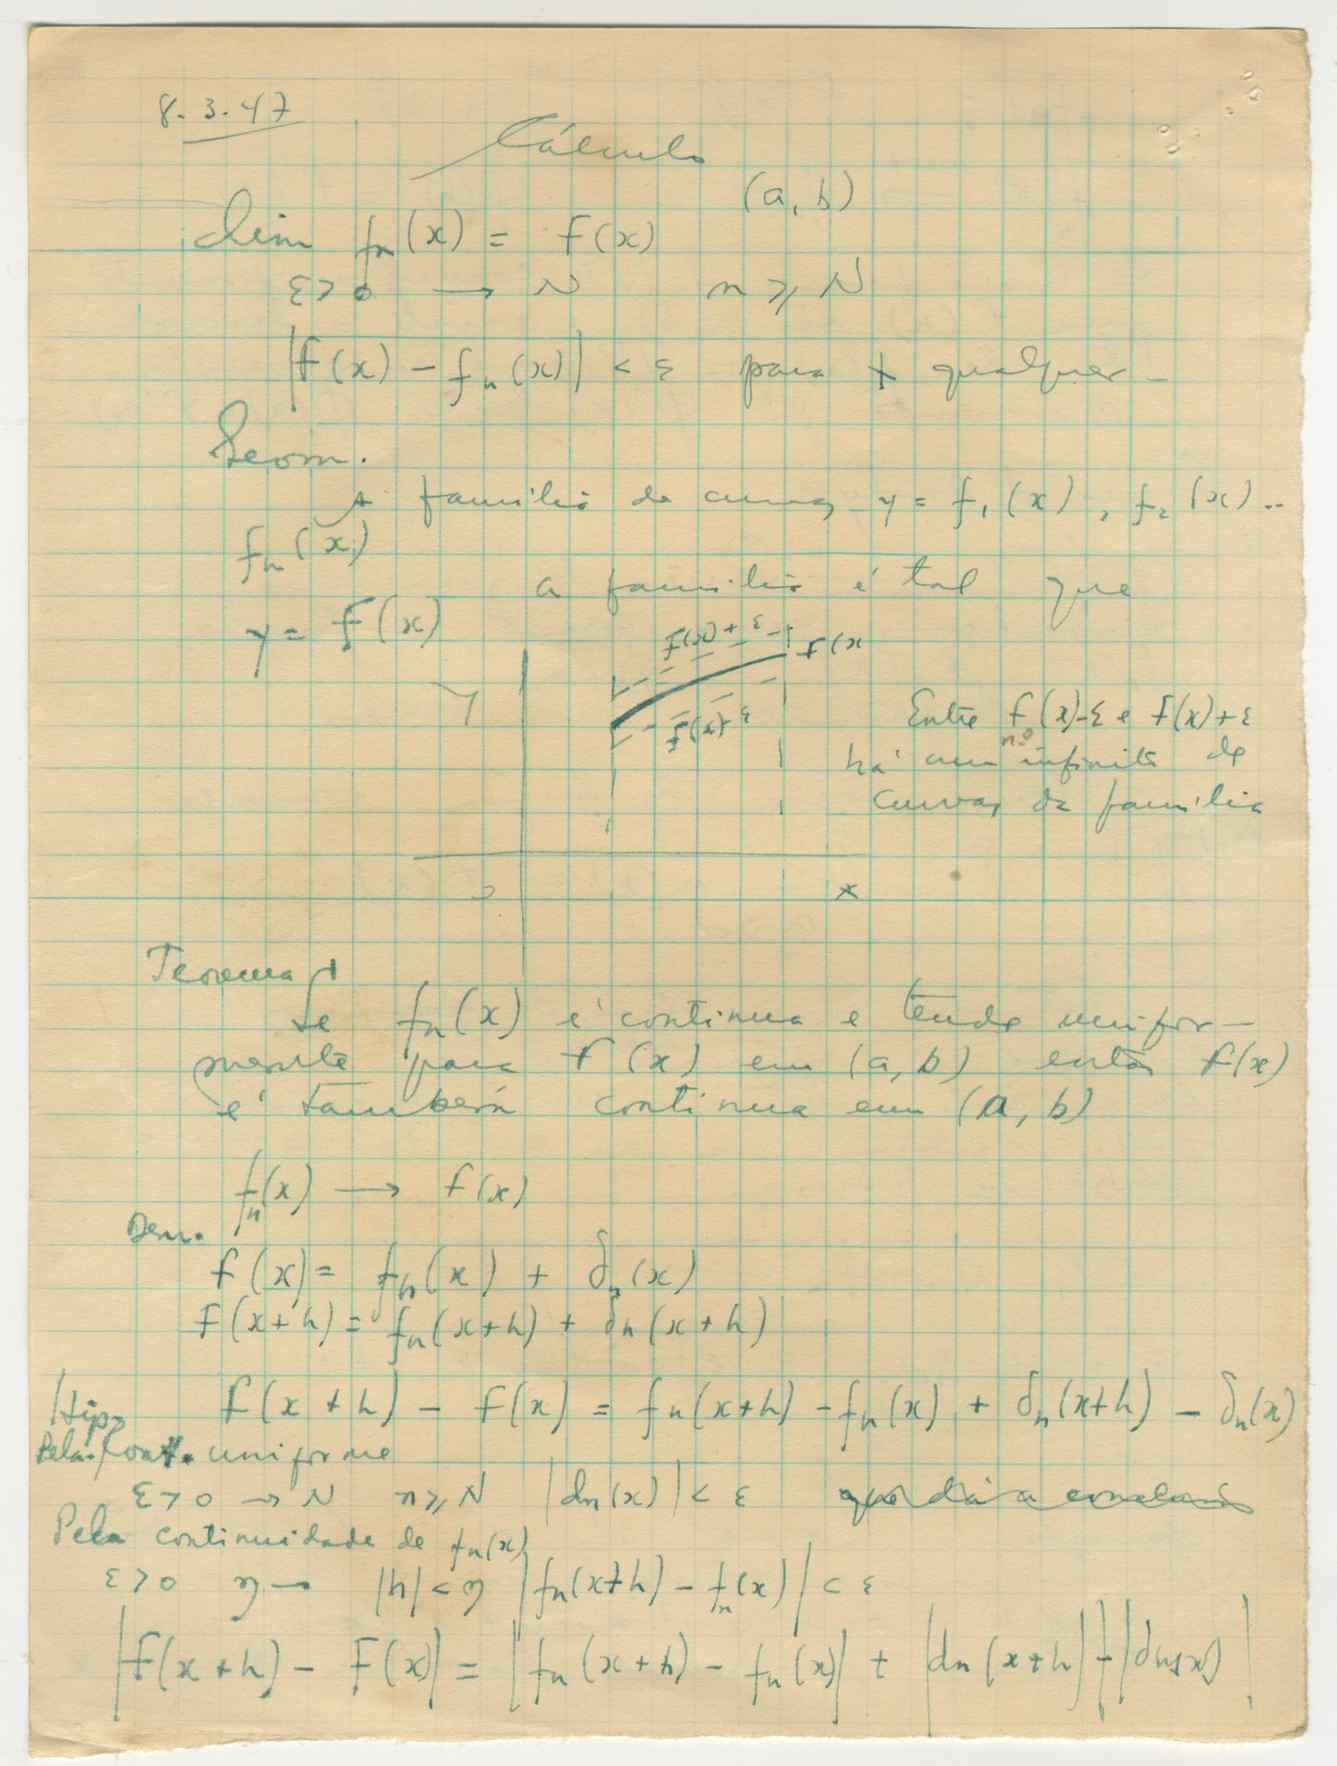 8. 3. 47
Cálculo
(a, b)
lim fn(x) = f(x)
ε > 0 → N n ≥ N
|f(x) - fn(x)| < ε para x qualquer -
Geom.
A familia de curvas y = f1(x), f2(x) ..
fn(x)
a familia é tal que
y = f(x)
f(x) + ε
f(x
y
f(x) - ε
Entre f(x)-ε e f(x)+ε
há um nº infinito de
curvas da familia
o x
Teorema
Se fn(x) é continua e tende unifor-
mente para f(x) em (a, b) então f(x)
é também continua em (a, b)
fn(x) → f(x)
Dem.
f(x) = fn(x) + δn(x)
f(x+h) = fn(x+h) + δn(x+h)
f(x+h) - f(x) = fn(x+h) - fn(x) + δn(x+h) - δn(x)
Hip
Pela Conv. uniforme
ε > 0 → N n ≥ N |dn(x)| < ε
Pela continuidade de fn(x)
ε > 0 η → |h| < η |fn(x+h) - fn(x)| < ε
|f(x+h) - f(x)| = |fn(x+h) - fn(x)| + |dn(x+h)| + |dn(x)|